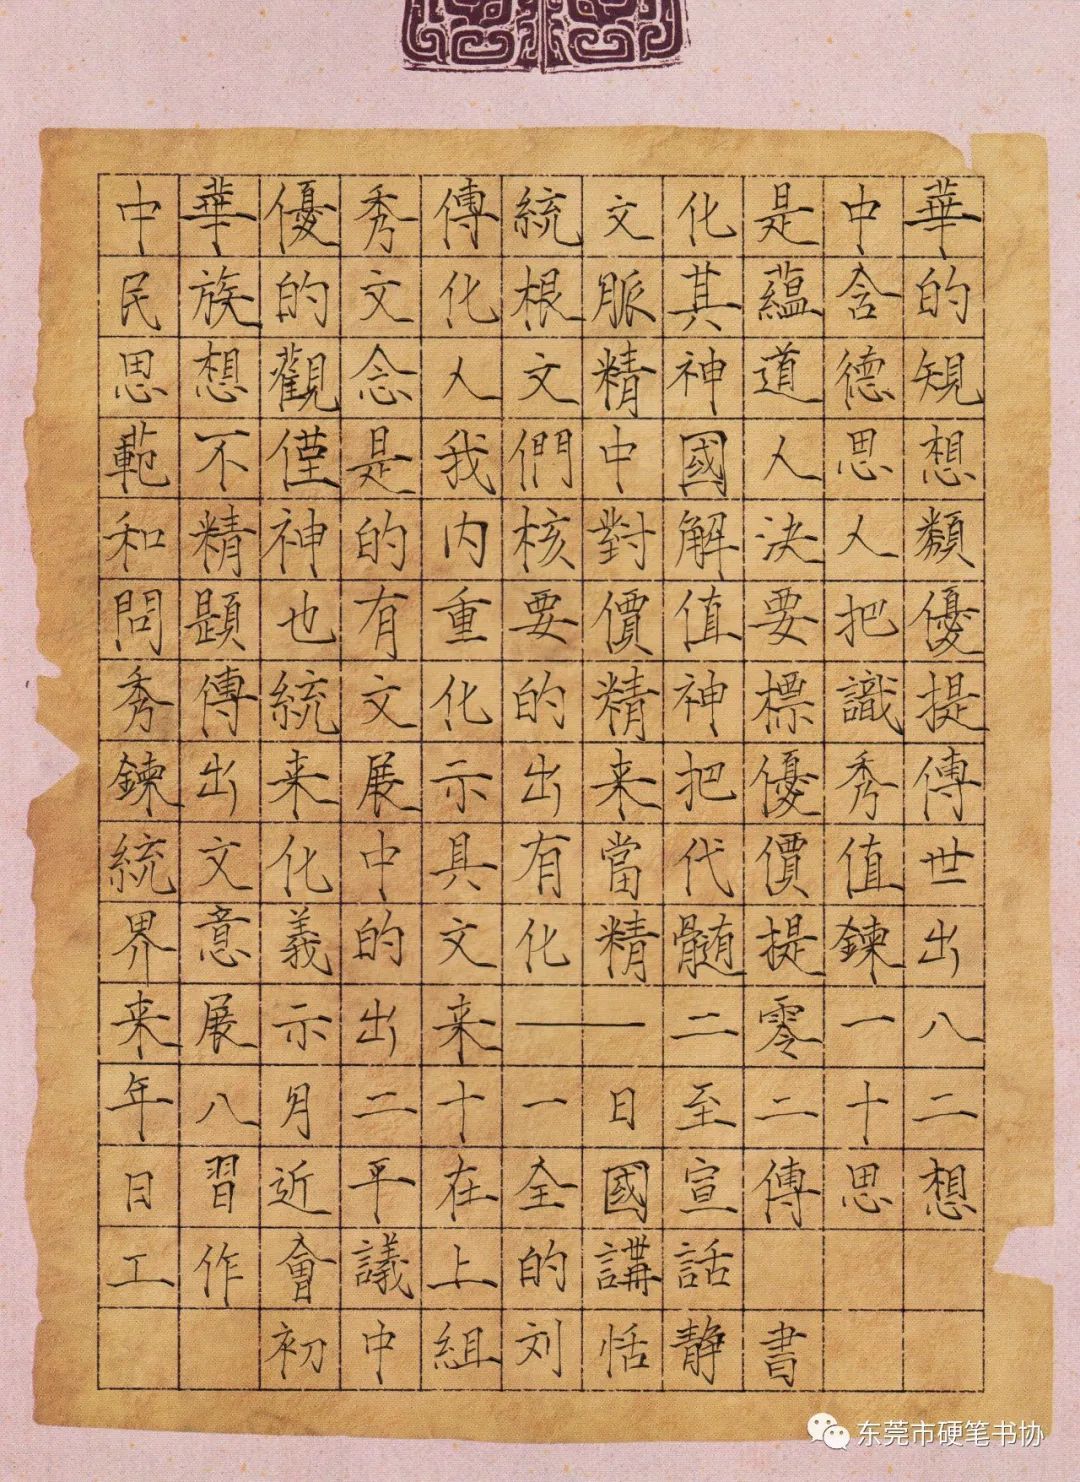 中華優秀傳統文化是中華
民族的文化根脈其蘊含的
思想觀念人文精神道德規
範不僅是我們中國人思想
和精神的内核對解決人類
問題也有重要價值要把優
秀傳統文化的精神標識提
鍊出来展示出来把優秀傳
統文化中具有當代價值世
界意義的文化精髓提鍊出
来展示出来——二零一八
年八月二十一日至二十二
日習近平在全國宣傳思想
工作會議上的講話
初中組刘恬静書
东莞市硬笔书协